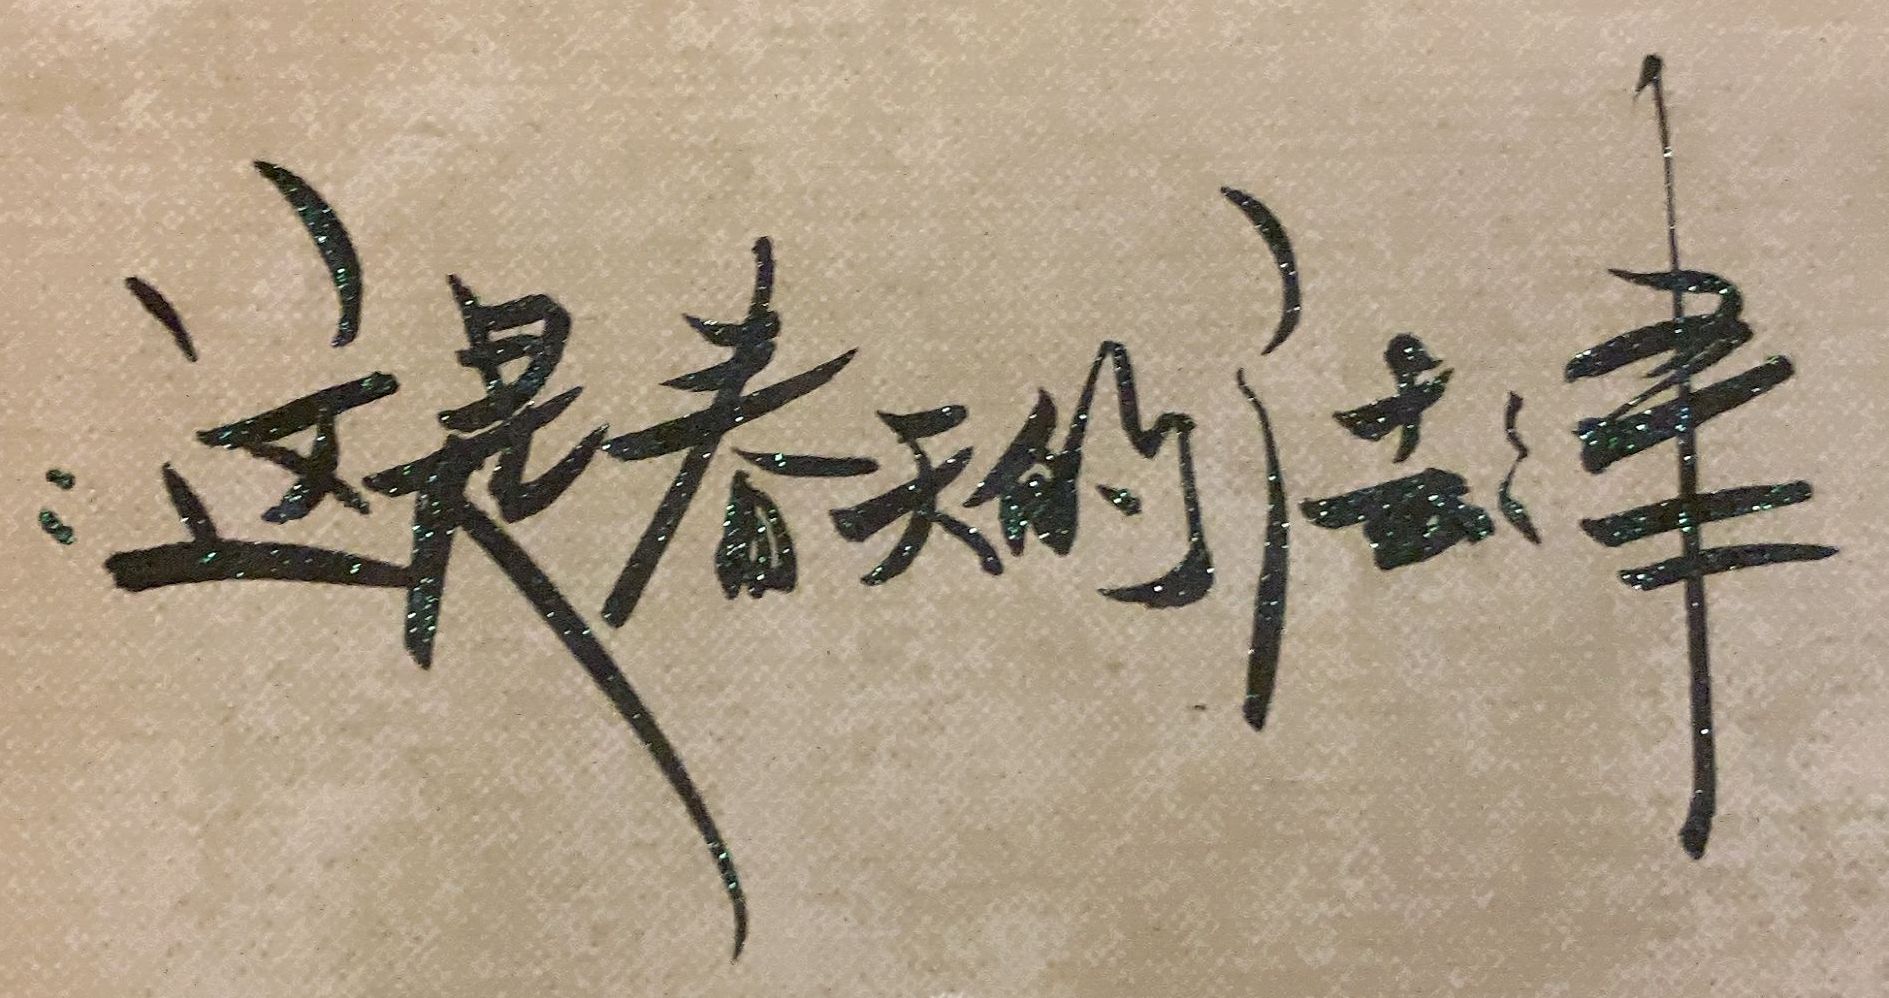 :这是春天的法律